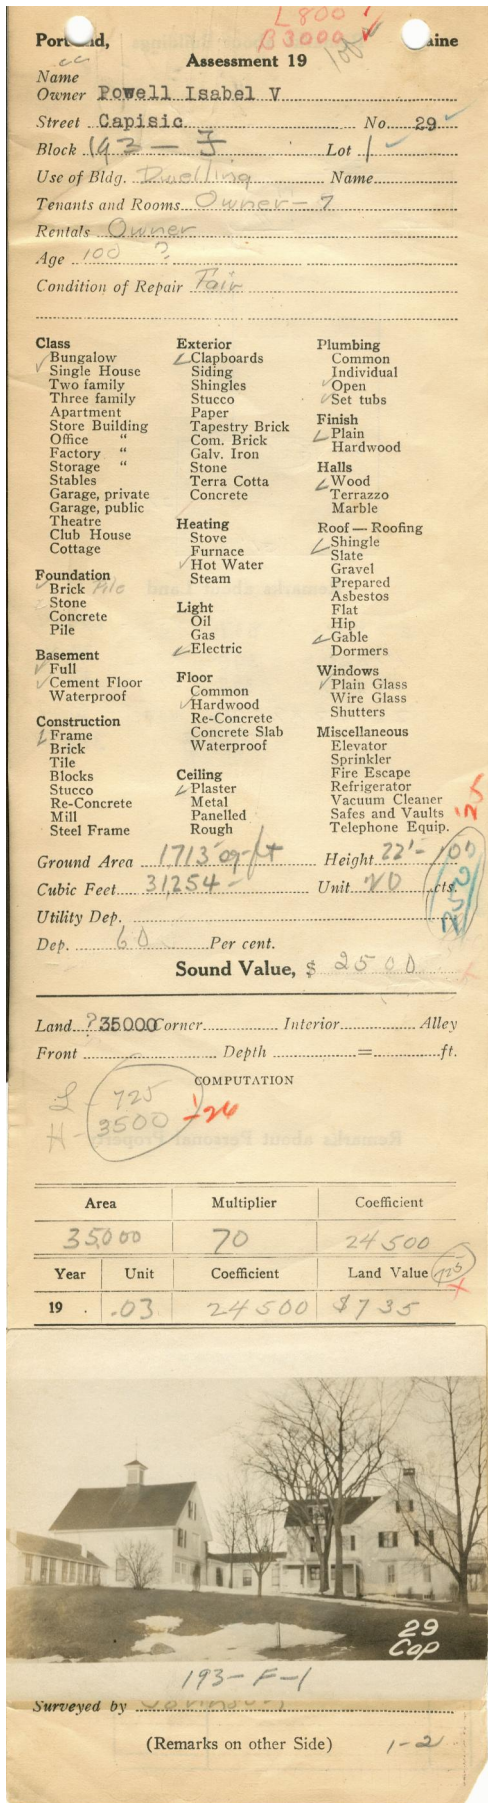 L 800
B 3000
Port nd, aine
Assessment 19
Name
Owner Powell Isabel V
Street Capisic No. 29
Block 193 - F Lot 1
Use of Bldg. Dwelling Name
Tenants and Rooms Owner - 7
Rentals Owner
Age 100 ?
Condition of Repair Fair
Class
Bungalow
Single House
Two family
Three family
Apartment
Store Building
Office "
Factory "
Storage "
Stables
Garage, private
Garage, public
Theatre
Club House
Cottage
Foundation
Brick Pile
Stone
Concrete
Pile
Basement
Full
Cement Floor
Waterproof
Construction
Frame
Brick
Tile
Blocks
Stucco
Re-Concrete
Mill
Steel Frame
Exterior
Clapboards
Siding
Shingles
Stucco
Paper
Tapestry Brick
Com. Brick
Galv. Iron
Stone
Terra Cotta
Concrete
Heating
Stove
Furnace
Hot Water
Steam
Light
Oil
Gas
Electric
Floor
Common
Hardwood
Re-Concrete
Concrete Slab
Waterproof
Ceiling
Plaster
Metal
Panelled
Rough
Plumbing
Common
Individual
Open
Set tubs
Finish
Plain
Hardwood
Halls
Wood
Terrazzo
Marble
Roof — Roofing
Shingle
Slate
Gravel
Prepared
Asbestos
Flat
Hip
Gable
Dormers
Windows
Plain Glass
Wire Glass
Shutters
Miscellaneous
Elevator
Sprinkler
Fire Escape
Refrigerator
Vacuum Cleaner
Safes and Vaults
Telephone Equip.
Ground Area 1713 sq-ft Height 22'-
Cubic Feet 31,254 - Unit 20 cts.
Utility Dep.
Dep. 60 Per cent.
Sound Value, $ 2500
Land ? 35000 Corner Interior Alley
Front Depth = ft.
COMPUTATION
L - 725
H - 3500 -26
Area Multiplier Coefficient
35,000 70 24500
Year Unit Coefficient Land Value 725
19 . .03 24500 $735
29
Cap
193-F-1
Surveyed by
(Remarks on other Side) 1-2